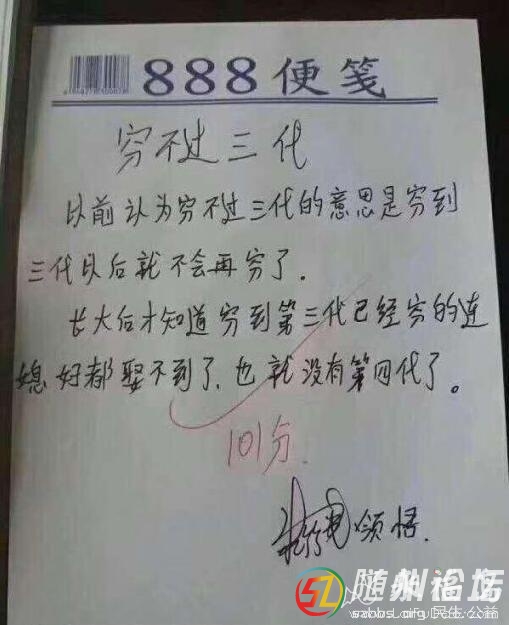 888便笺
穷不过三代
以前认为穷不过三代的意思是穷到
三代以后就不会再穷了.
长大后才知道穷到第三代已经穷的连
媳好都娶不到了,也就没有第四代了。
101分.
领悟.
随州论坛